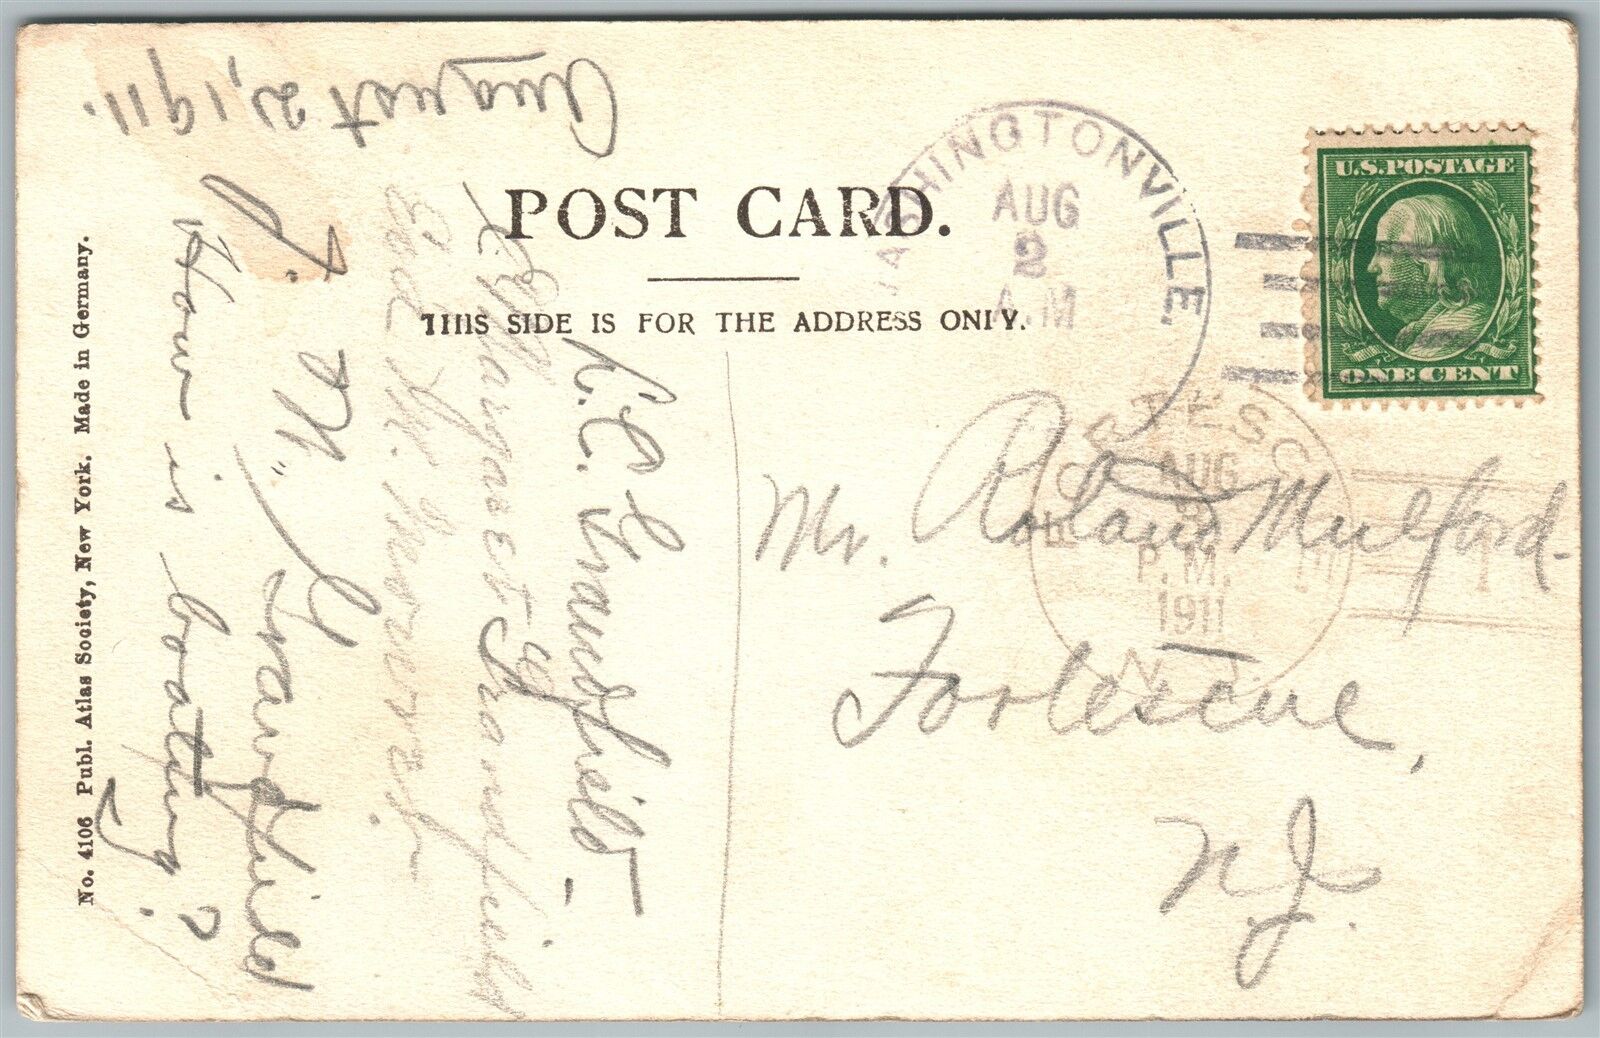 August 2, 1911.
POST CARD.
THIS SIDE IS FOR THE ADDRESS ONLY.
WASHINGTONVILLE,
AUG
2
A.M
U.S. POSTAGE
ONE CENT
FORTESC
AUG
P.M.
1911
N.J.
Mr. Roland Mulford.
Fortescue,
N.J.
K.C. Grandfield
Margaret Grandfield
J. F. M. Grandfield
How is boating?
No. 4106 Publ. Atlas Society, New York. Made in Germany.